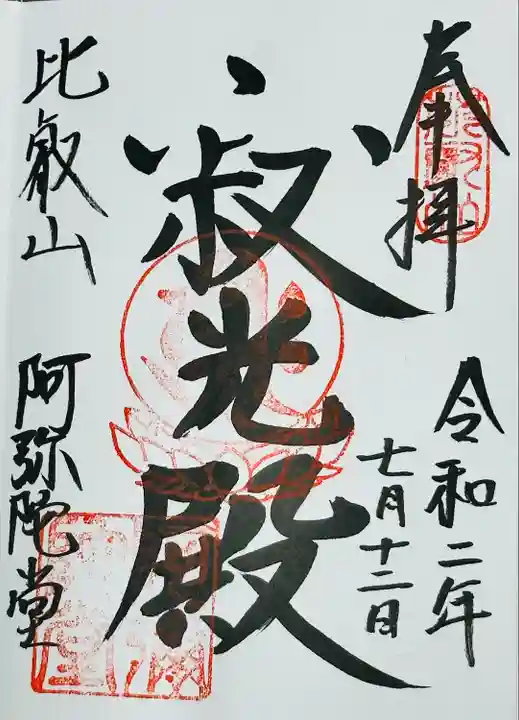 奉拝
令和二年
七月十二日
寂光殿
比叡山 阿弥陀堂